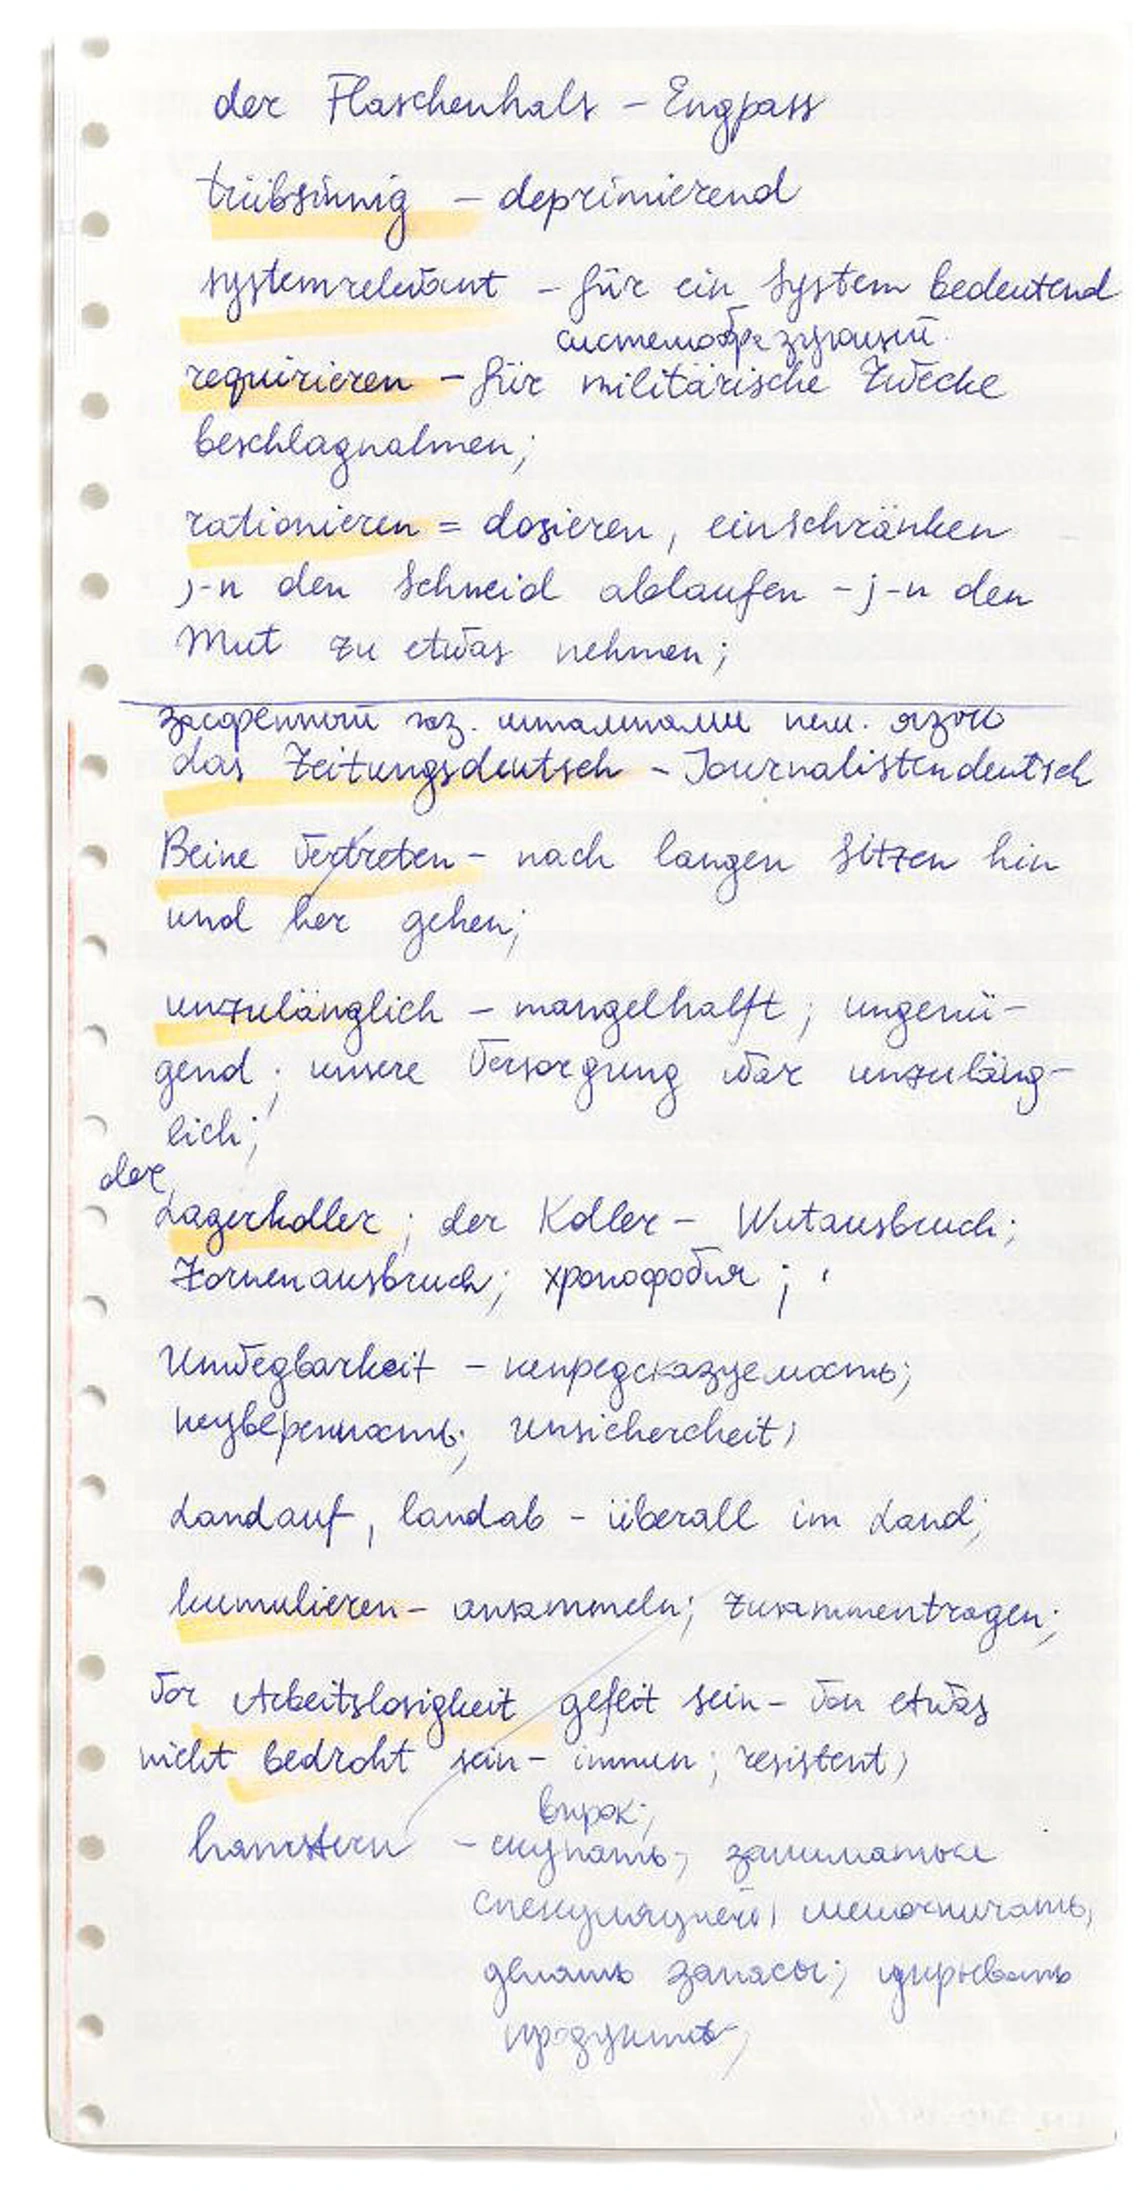 der Flaschenhals – Engpass
trübsinnig – deprimierend
systemrelevant – für ein System bedeutend
системообразующий.
requirieren – für militärische Zwecke
beschlagnahmen;
rationieren = dosieren, einschränken
j-n den Schneid ablaufen – j-n den
Mut zu etwas nehmen;
газ. штампами нем. язык
das Zeitungsdeutsch – Journalistendeutsch
Beine vertreten – nach langen Sitzen hin
und her gehen;
unzulänglich – mangelhalft; ungenü-
gend; unsere Versorgung war unzuläng-
lich;
der
Lagerkoller; der Koller – Wutausbruch;
Zornenausbruch; хронофобия;
Unwegbarkeit – непредсказуемость;
неуверенность; Unsichercheit;
Landauf, landab – überall im Land;
kumulieren – ansammeln; zusammentragen;
Vor Arbeitslosigkeit gefeit sein – von etwas
nicht bedroht sein – immun; resistent;
впрок;
hamstern – скупать; заниматься
спекуляцией; мешочничать,
делать запасы; укрывать
продукты;